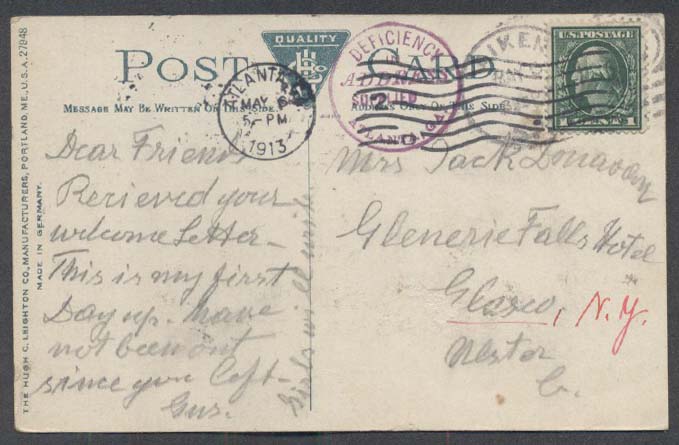 THE HUGH C. LEIGHTON CO., MANUFACTURERS, PORTLAND, ME., U.S.A. 27948
MADE IN GERMANY.
POST CARD
QUALITY
MESSAGE MAY BE WRITTEN ON THIS SIDE.
ADDRESS ONLY ON THIS SIDE
ATLANTA, GA.
MAY 6
5 - PM
1913
DEFICIENCY
IN
ADDRESS
SUPPLIED
2
ATLANTA, GA.
AIKEN
U.S. POSTAGE
1 CENTS 1
Dear Friend
Recieved your
welcome Letter-
This is my first
Day up. have
not been out
since you left-
Gus.
Girls will write
Mrs Jack Donavan
Glenerie Falls Hotel
Glasco, N.Y.
Ulster
Co.